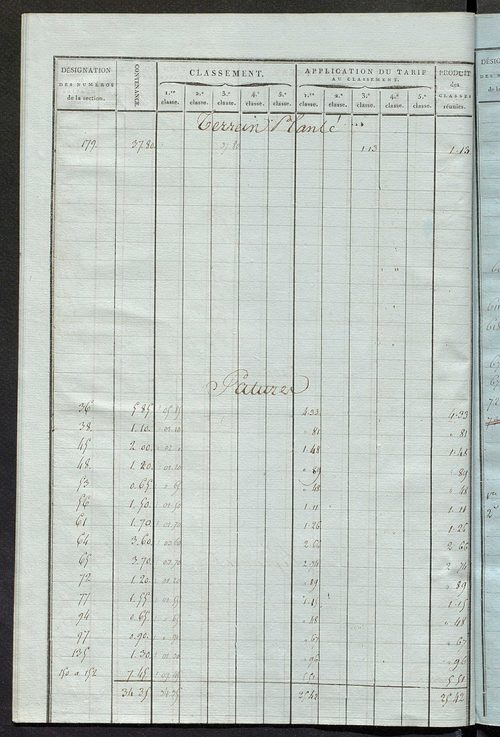 DÉSIGNATION DES NUMÉROS de la section. CONTENANCE CLASSEMENT. APPLICATION DU TARIF AU CLASSEMENT. PRODUIT des CLASSES réunies.
1.re classe. 2.e classe. 3.e classe. 4.e classe. 5.e classe. 1.re classe. 2.e classe. 3.e classe. 4.e classe. 5.e classe.
Terrein Planté
179 37.80 37.80 1.13 1.13
Patures
36 5.85 4.33 4.33
38 1.10 " 81 " 81
45 2.00 1.48 1.48
48 1.20 " 89 " 89
53 0.65 " 48 " 48
56 1.50 1.11 1.11
61 1.70 1.26 1.26
64 3.60 2.66 2.66
65 3.70 2.74 2.74
72 1.20 " 89 " 89
77 1.55 1.15 1.15
94 0.65 " 48 " 48
97 0.90 " 67 " 67
135 1.30 " 96 " 96
150 a 152 7.45 5.51
34.35 34.35 25.42 25.42